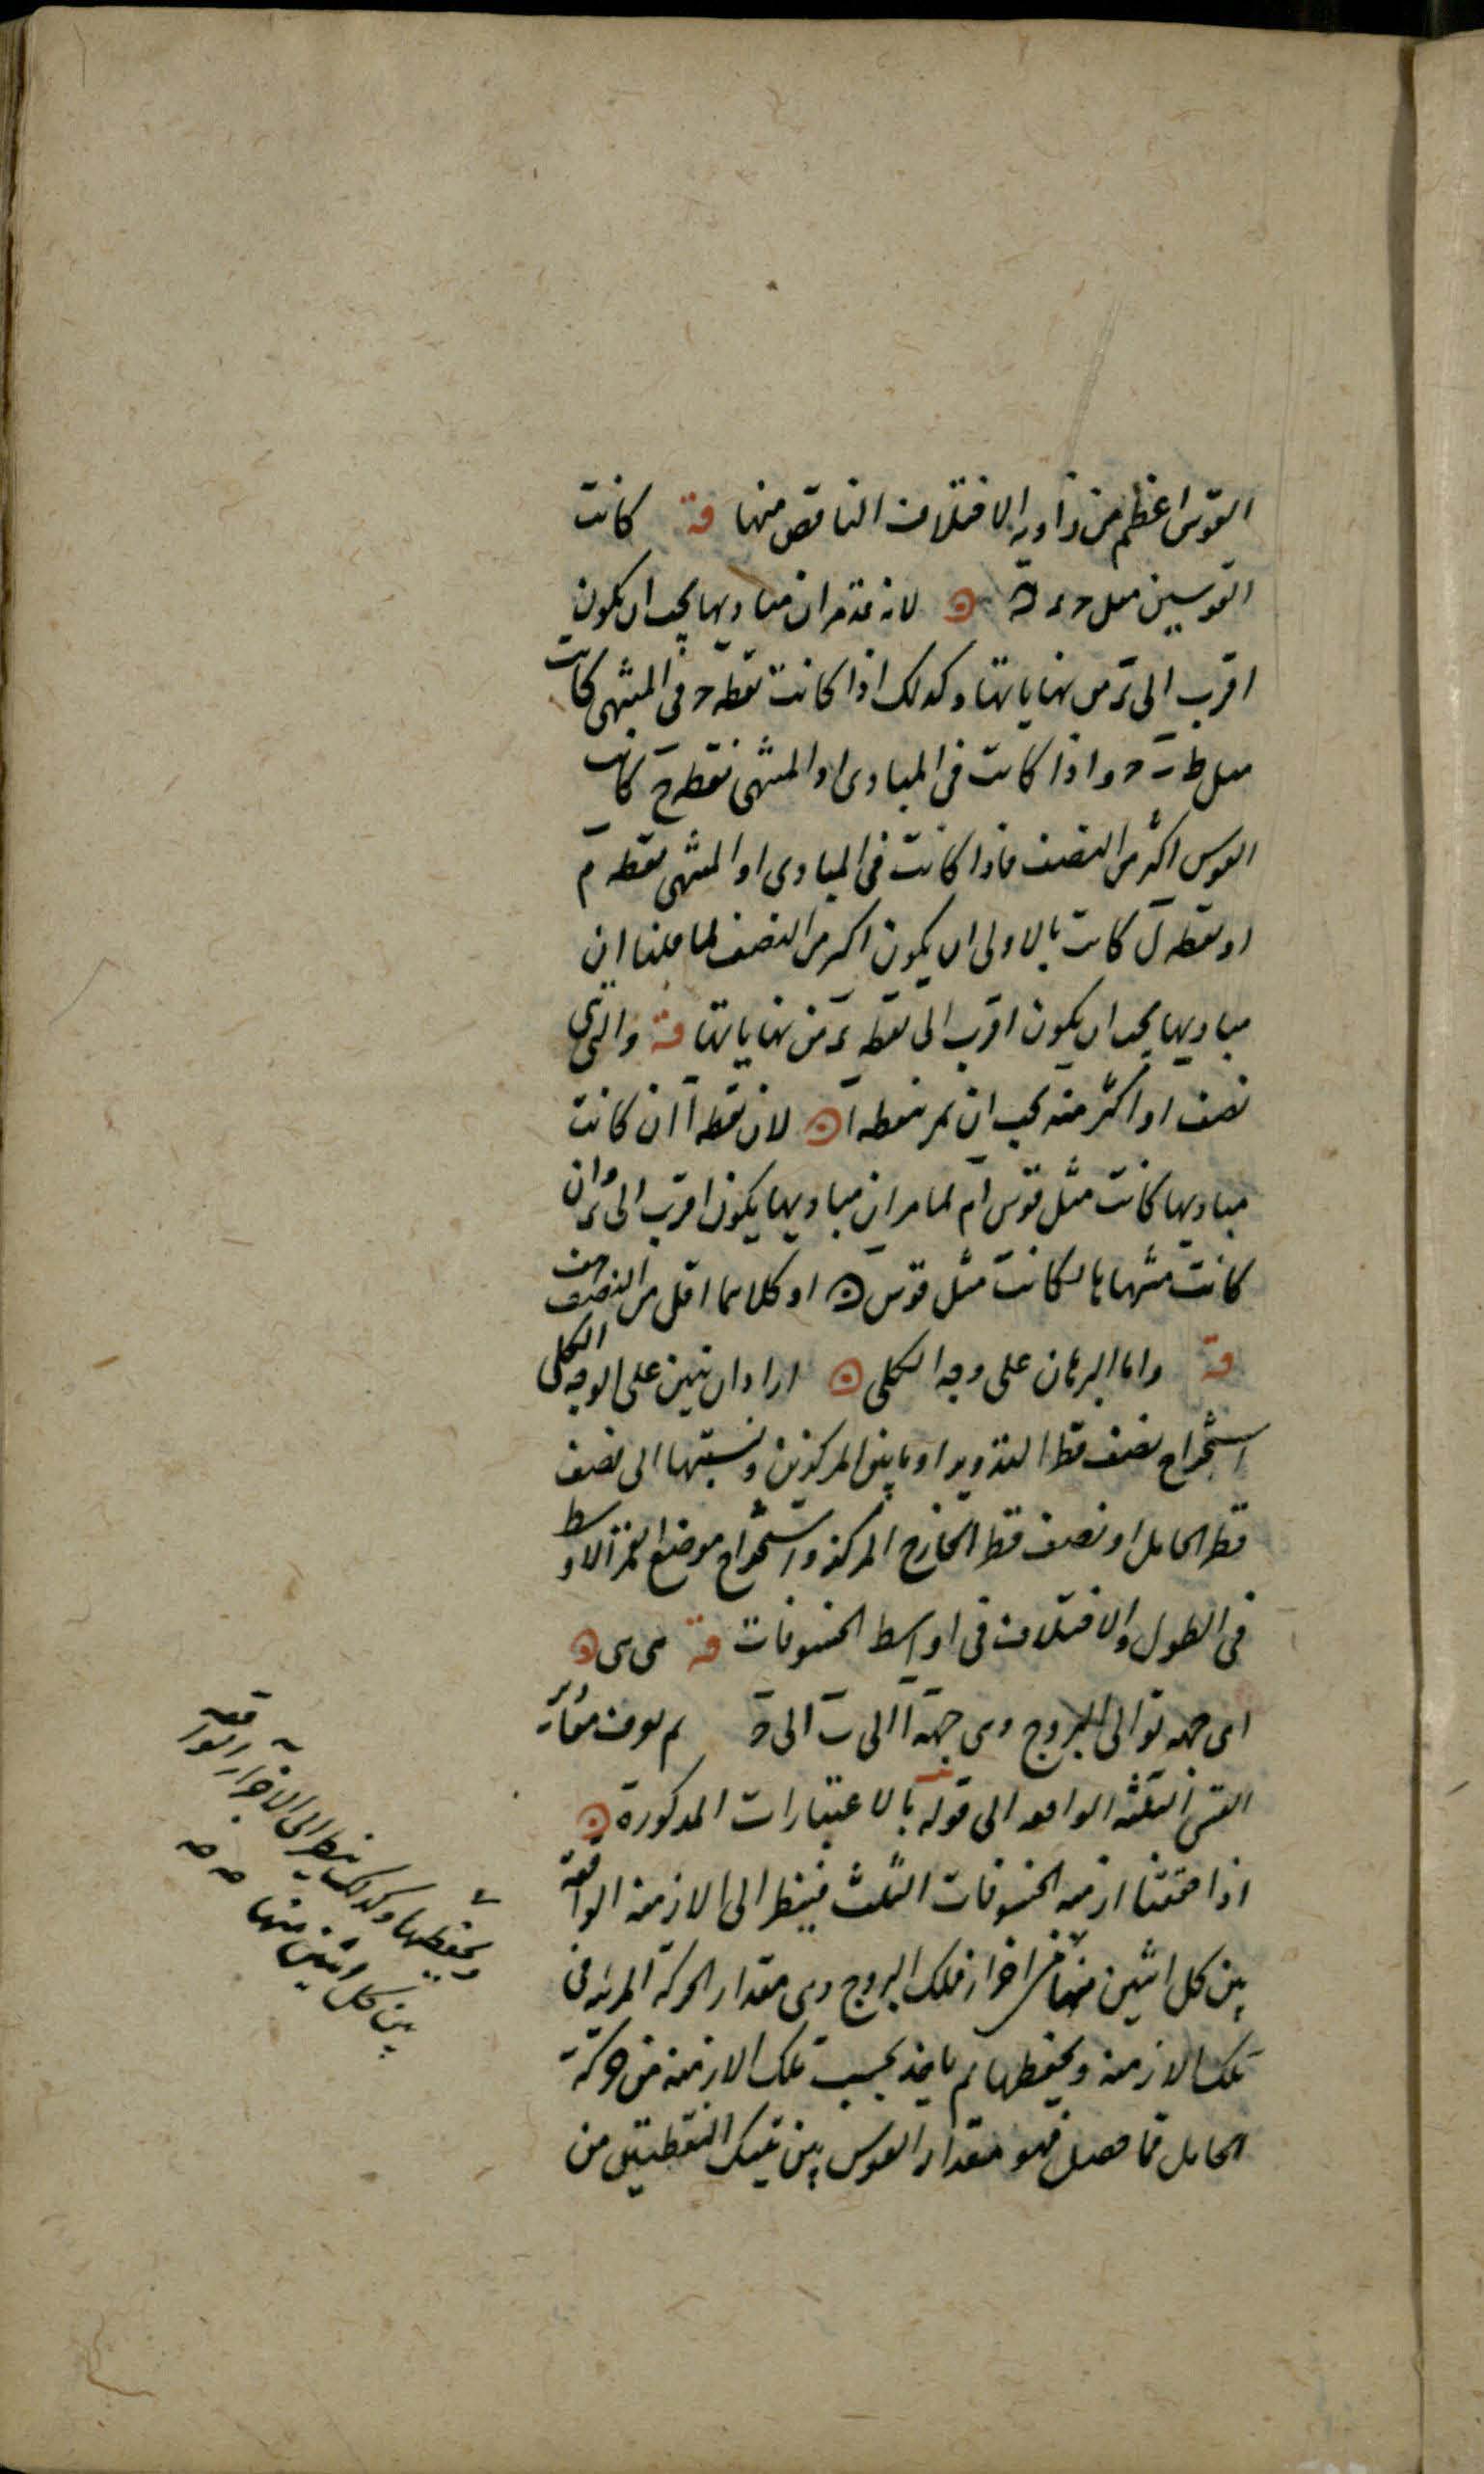 القوس اعظم من زاوية الاختلاف الناقص منها قه كانت
القوسين مثل لانه تقدم ان مباديها يجب ان يكون
اقرب الى من نهاياتها وكذلك اذا كانت نقطة د فى المنتهى كانت
مثل د واذا كانت فى المبادى او المنتهى نقطة ح كانت
القوس اكثر من النصف فاذا كانت فى المبادى او المنتهى نقطة م
او نقطة ل كانت بالاولى ان يكون اكثر من النصف لما قلنا ان
مباديها يجب ان يكون اقرب الى نقطة من نهاياتها قه والتى هى
نصف او اكثر منه يجب ان تمر بنقطة ا لان نقطة ا ان كانت
مباديها كانت مثل قوس ام لما مر ان مباديها يكون اقرب الى وان
كانت منتهاها لكانت مثل قوس او كلاهما اقل من النصف هف
قه واما البرهان على وجه الكلى اراد ان يبين على الوجه الكلى
استخراج نصف قطر التدوير او ما بين المركزين ونسبتها الى نصف
قطر الحامل او نصف قطر الخارج المركز واستخراج موضع القمر الاوسط
فى الطول والاختلاف فى اواسط الخسوفات قه
اى جهة توالى البروج وهى جهة ا الى ب الى ح ثم يعرف مقادير
القسى الثلثة الواقعة الى قوله بالاعتبارات المذكورة
اذا حققنا ازمنه الخسوفات الثلث فينظر الى الازمنة الواقعة
بين كل اثنين منها من اجزاء فلك البروج وهى مقدار الحركة المرئية فى
تلك الازمنة ويحفظها ثم ياخذ بحسب تلك الازمنة من حركة
الحامل فما حصل فهو مقدار القوس بين تينك النقطتين من
ويحفظها وكذلك ينظر الى الاجزاء الواقعة
بين كل اثنين منها صح صح